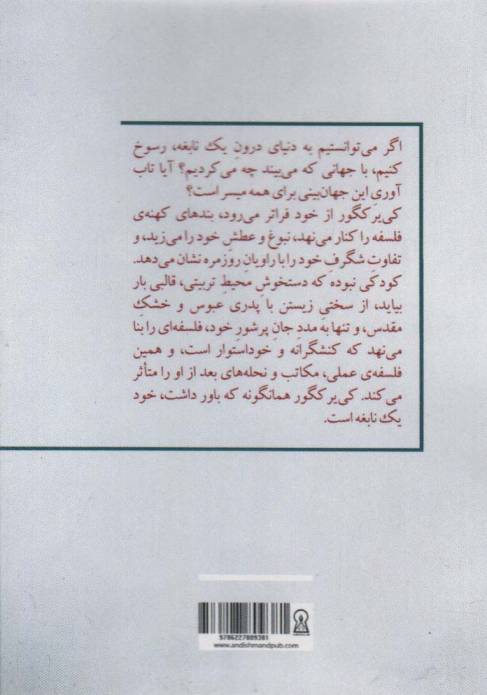 اگر می‌توانستیم به دنیای درونِ یک نابغه، رسوخ
کنیم، با جهانی که می‌بیند چه می‌کردیم؟ آیا تاب
آوری این جهان‌بینی برای همه میسر است؟
کی‌یرکگور از خود فراتر می‌رود، بندهای کهنه‌ی
فلسفه را کنار می‌نهد، نبوغ و عطشِ خود را می‌زید، و
تفاوتِ شگرفِ خود را با راویانِ روزمره نشان می‌دهد.
کودکی نبوده که دستخوشِ محیطِ تربیتی، قالبی بار
بیاید، از سختیِ زیستن با پدری عبوس و خشکِ
مقدس، و تنها به مددِ جانِ پرشورِ خود، فلسفه‌ای را بنا
می‌نهد که کنشگرانه و خوداستوار است، و همین
فلسفه‌ی عملی، مکاتب و نحله‌های بعد از او را متأثر
می‌کند. کی‌یرکگور همانگونه که باور داشت، خود
یک نابغه است.
9786227809381
www.andishmandpub.com